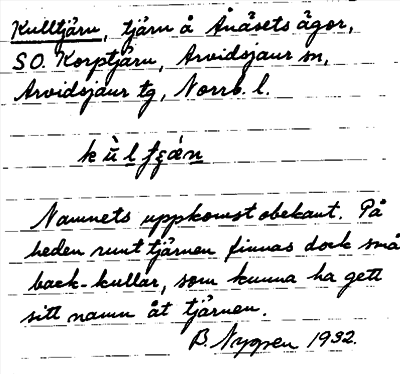 Kulltjärn, tjärn å Ånäsets ägor,
SO. Korptjärn, Arvidsjaur sn,
Arvidsjaur tg, Norrb. l.
Namnets uppkomst obekant. På
heden runt tjärnen finnas dock små
back-kullar, som kunna ha gett
sitt namn åt tjärnen.
B. Nygren 1932.